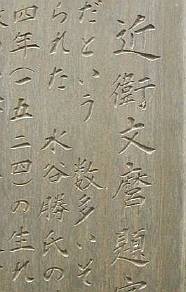 近衛文麿題
だという 数多いそ
られた 水谷勝氏の
四年(一五二四)の生れ